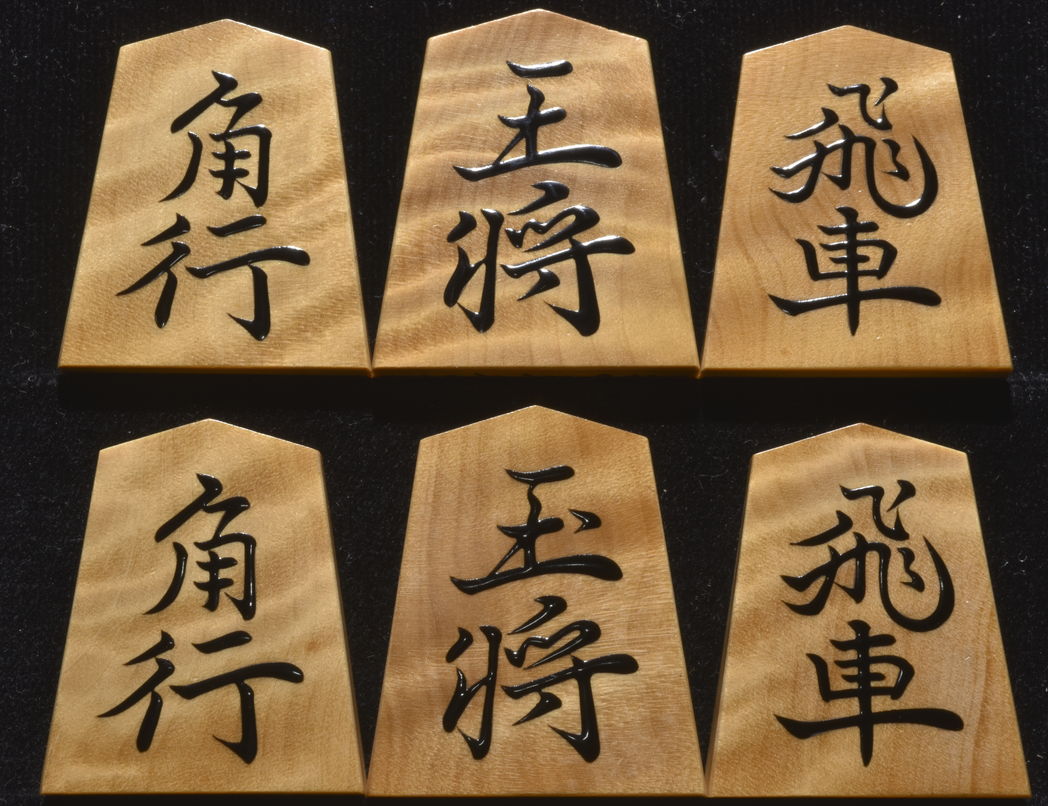 角行
王将
飛車
角行
玉将
飛車